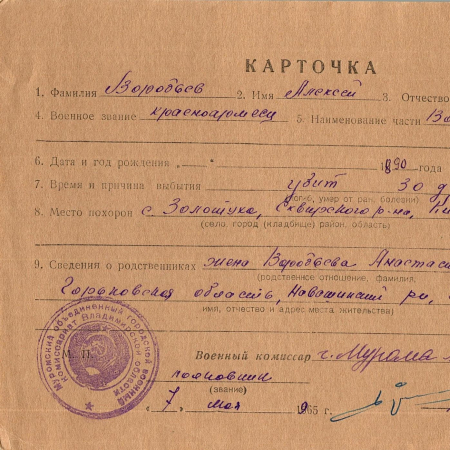 КАРТОЧКА
1. Фамилия Воробьев 2. Имя Алексей 3. Отчество
4. Военное звание красноармеец 5. Наименование части
6. Дата и год рождения „ “ 1890 года
7. Время и причина выбытия убит 30
(погиб, умер от ран, болезни)
8. Место похорон с. Золотуха, Сквирского р-на,
(село, город (кладбище) район, область)
9. Сведения о родственниках жена Воробьева Анастаси
(родственное отношение, фамилия,
Горьковская область, Навашинский
имя, отчество и адрес места жительства)
Муромский объединенный городской военный комиссариат Владимирской области
М. П.
Военный комиссар г. Мурома
полковник
(звание)
„7 мая 1965 г.